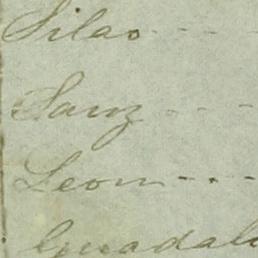 Silao - - -
Sanz - - -
Leon - - -